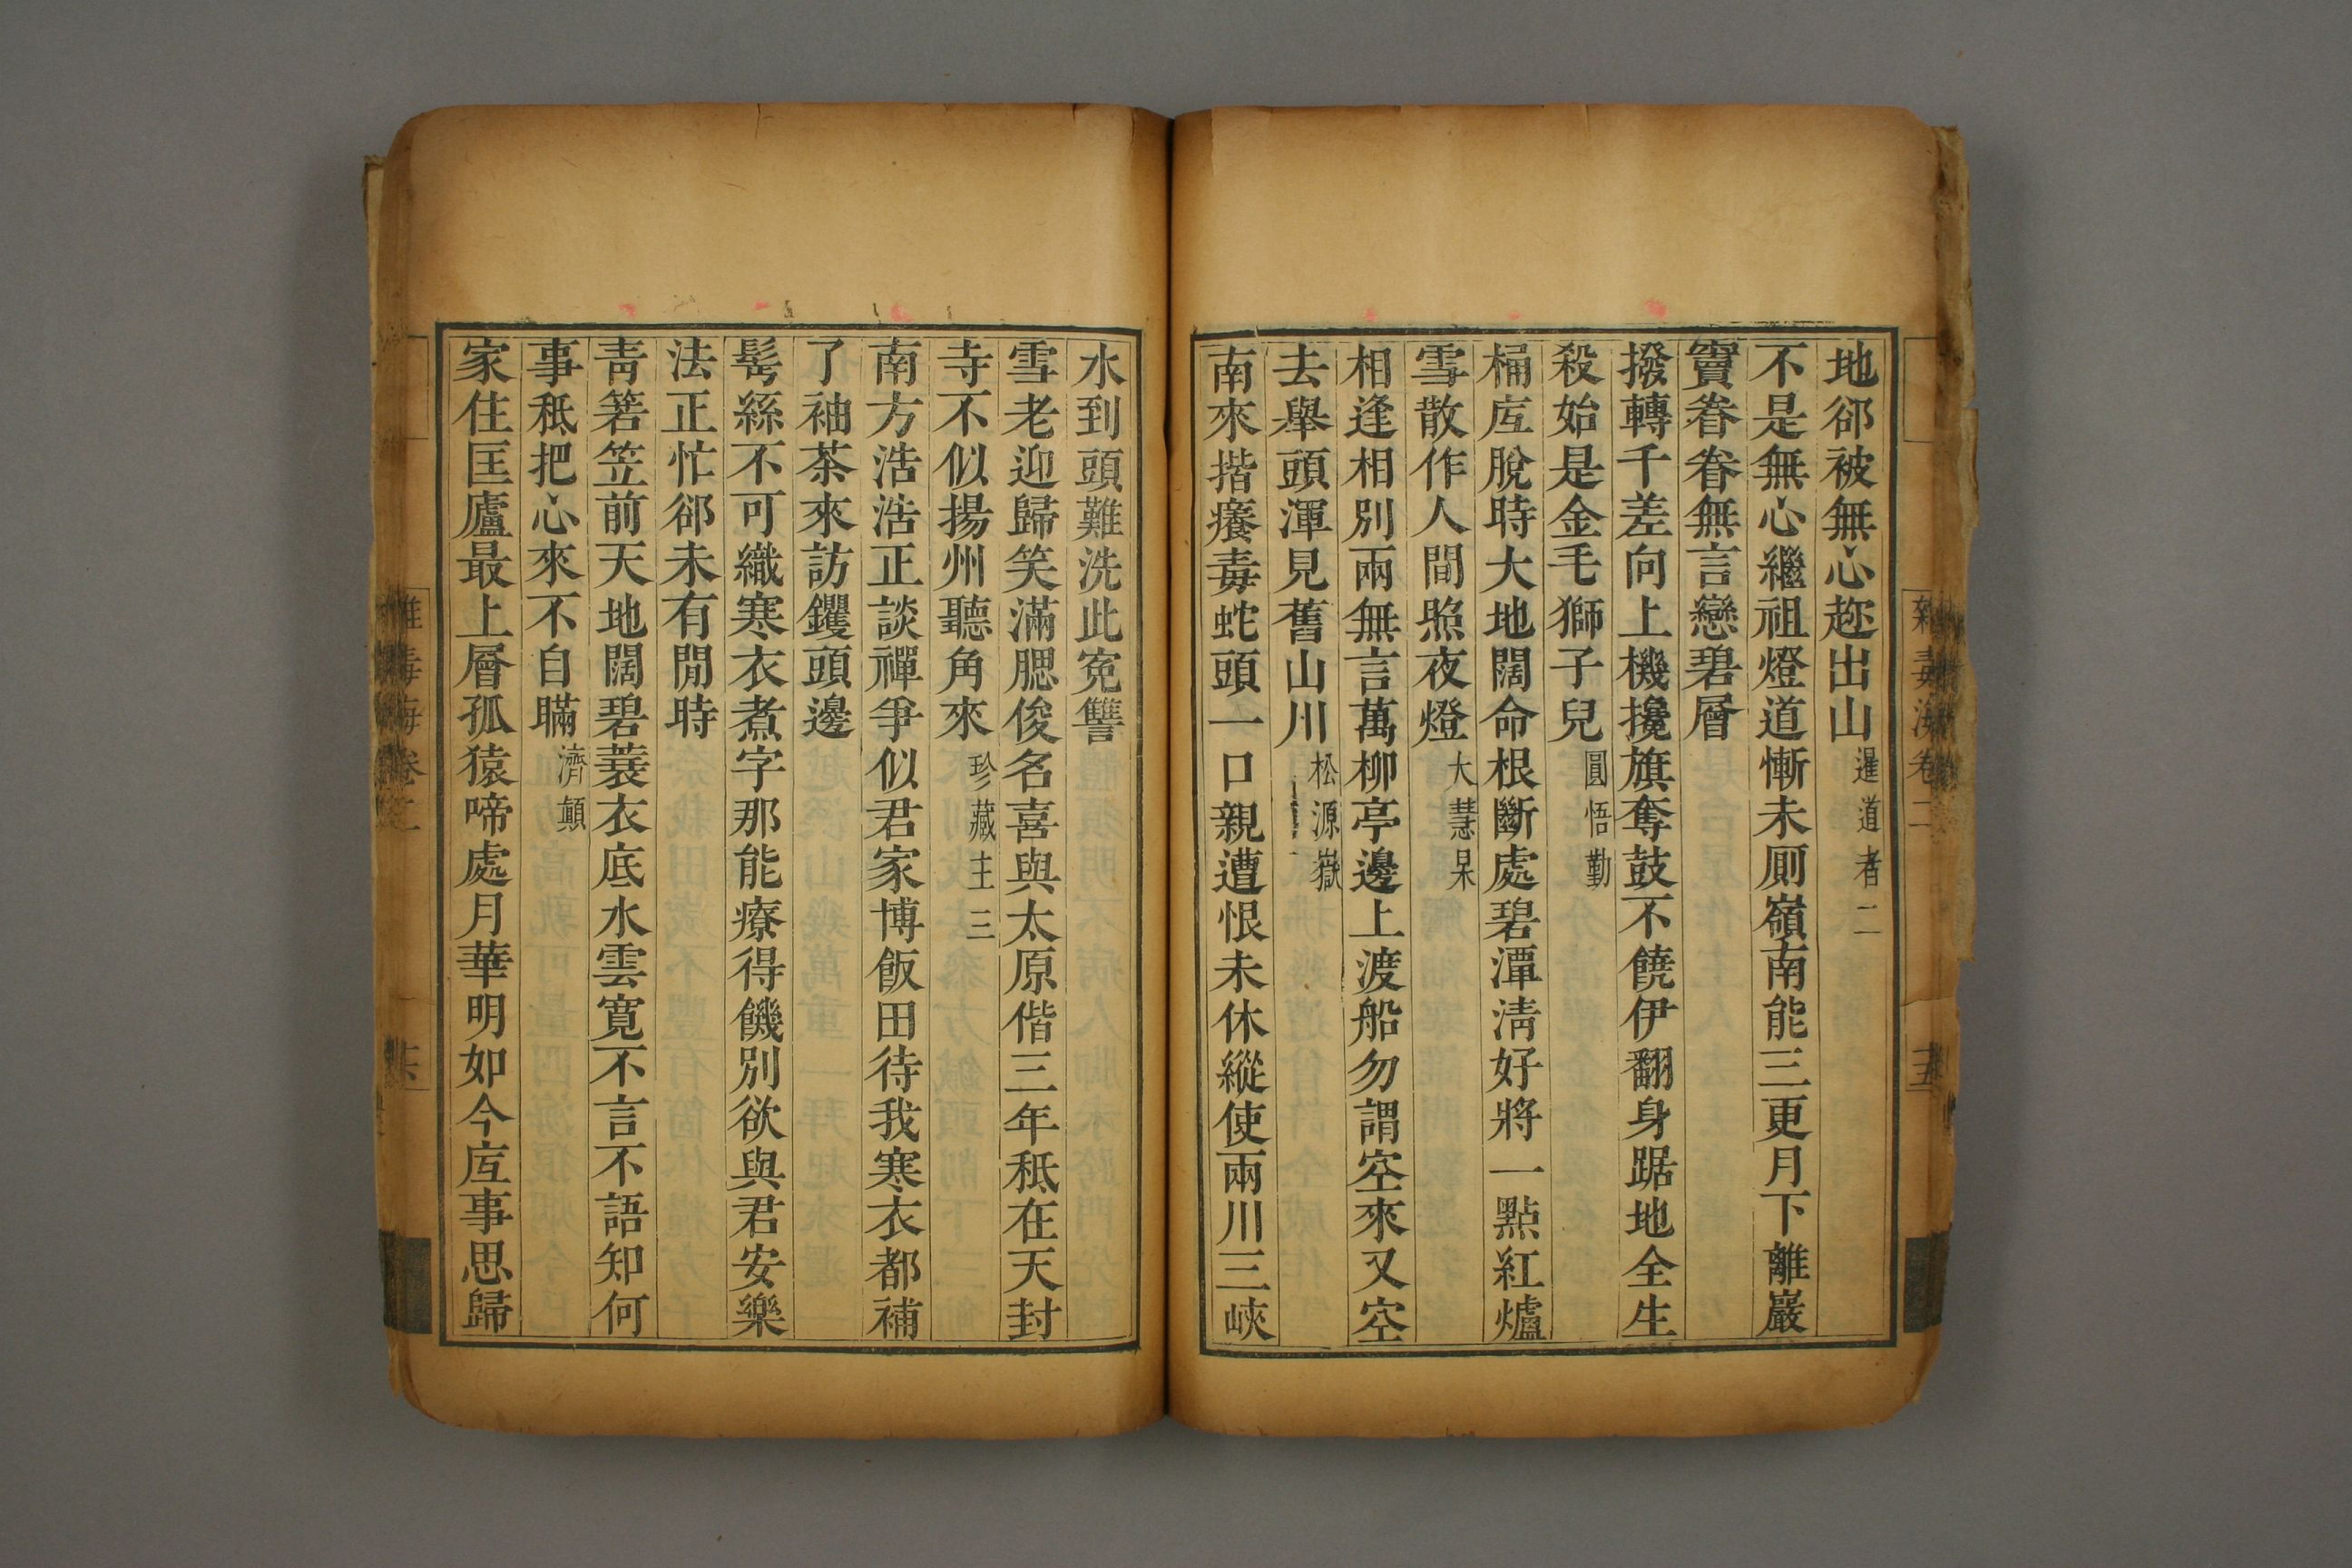 地郤被無心趂出山 暹道者二
不是無心繼祖燈道慚未厠嶺南能三更月下離巖
竇眷眷無言戀碧層
撥轉千差向上機攙旗奪鼓不饒伊翻身踞地全生
殺始是金毛獅子兒 圓悟勤
桶底脫時大地闊命根斷處碧潭淸好將一點紅爐
雪散作人間照夜燈 大慧杲
相逢相別兩無言萬柳亭邊上渡船勿謂空來又空
去舉頭渾見舊山川 松源嶽
南來揩癢毒蛇頭一口親遭恨未休縱使兩川三峽
水到頭難洗此寃讐
雪老迎歸笑滿腮俊名喜與太原偕三年秪在天封
寺不似揚州聽角來 珍藏主三
南方浩浩正談禪爭似君家博飯田待我寒衣都補
了袖茶來訪钁頭邊
髩絲不可織寒衣煮字那能療得饑別欲與君安樂
法正忙郤未有閒時
靑箬笠前天地闊碧蓑衣底水雲寬不言不語知何
事秪把心來不自瞞 濟顛
家住匡廬最上層孤猿啼處月華明如今底事思歸
雜毒海卷二